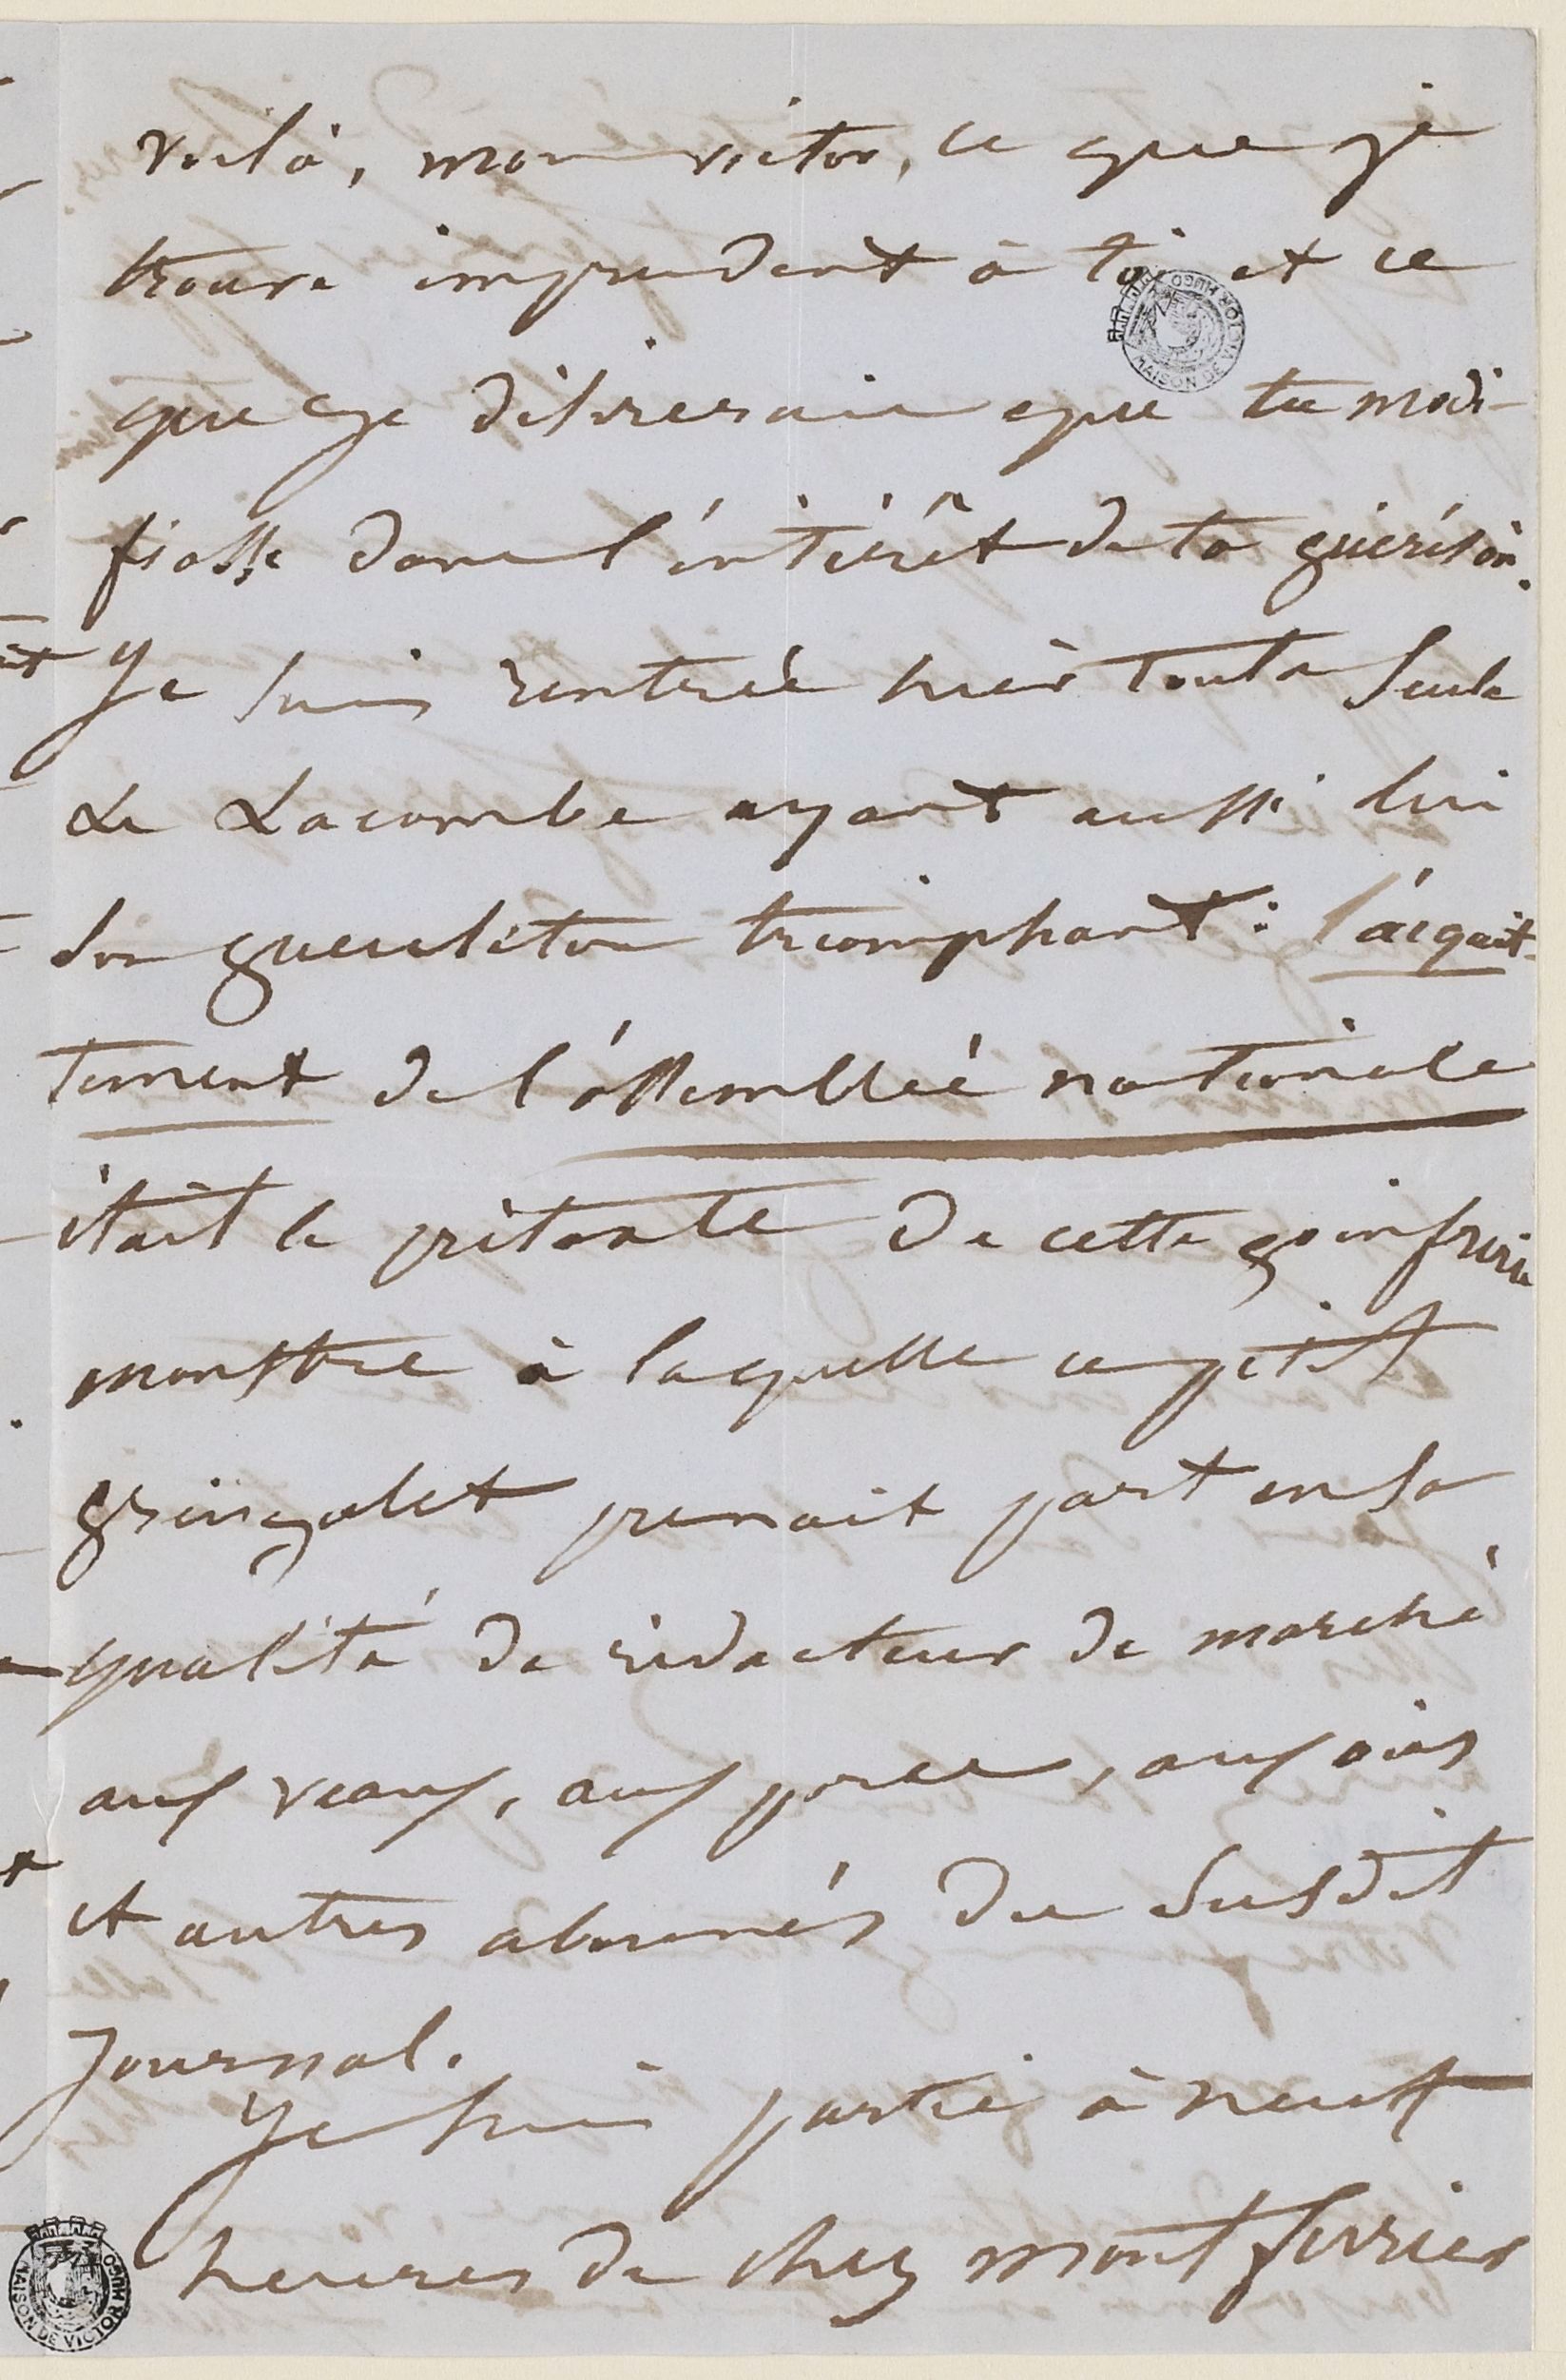 voilà, mon victor, ce que je
trouve imprudent à toi et ce
que je désirerais que tu modi-
fiasse dans l'intérêt de ta guérison.
Je suis rentrée hier toute seule
Le Lacombe ayant aussi lui
son gueuleton triomphant : l'acquit-
tement de l'assemblée nationale
était le prétexte de cette goinfrerie
monstre à laquelle ce petit
gringalet prenait part en sa
qualité de rédacteur de marché
aux veaux, aux porcs, aux oies
et autres abonnés du susdit
Journal.
Je suis partie à neuf
heures de chez montferrier
MAISON DE VICTOR HUGO
MAISON DE VICTOR HUGO